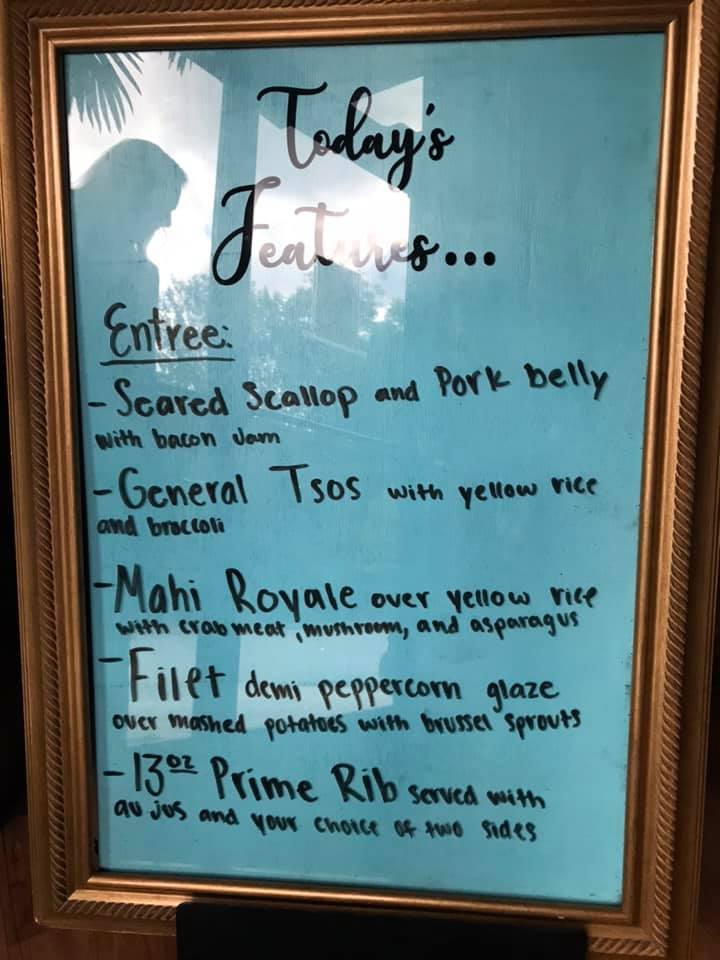 Today's
Features...
Entree:
- Seared Scallop and Pork belly
with bacon Jam
- General Tsos with yellow rice
and broccoli
- Mahi Royale over yellow rice
with crab meat, mushroom, and asparagus
- Filet demi peppercorn glaze
over mashed potatoes with brussel sprouts
- 13oz Prime Rib served with
au jus and your choice of two sides